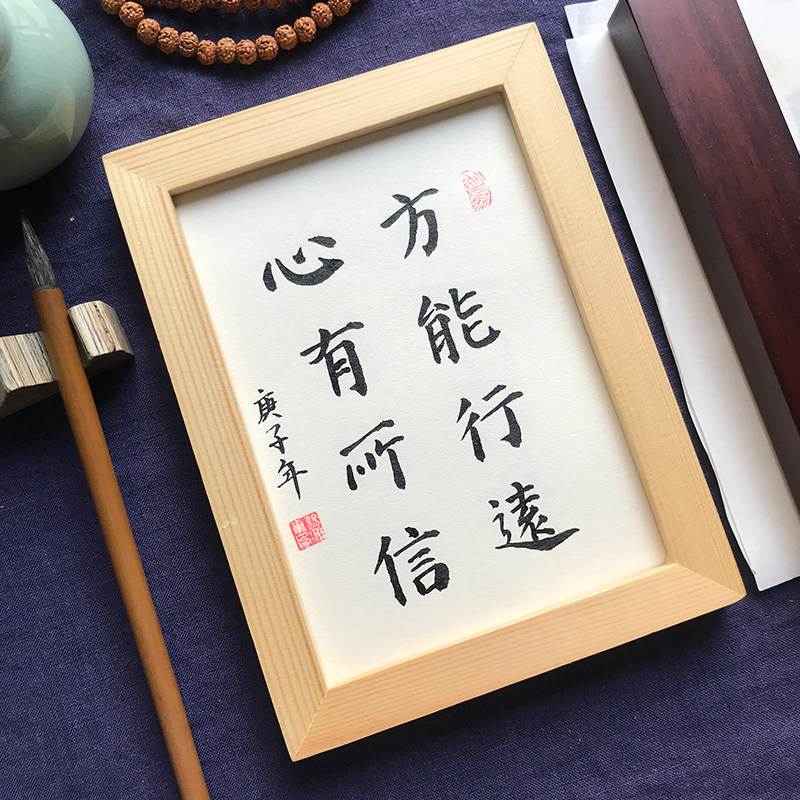 方能行遠
心有所信
庚子年